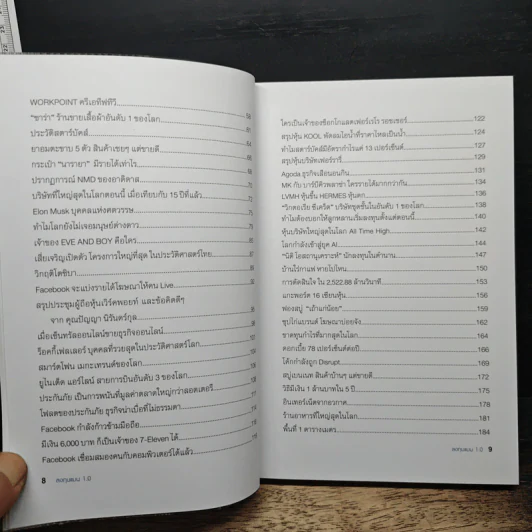 WORKPOINT ครีเอทีฟทีวี
"ซาร่า" ร้านขายเสื้อผ้าอันดับ 1 ของโลก 58
ประวัติสตาร์บัคส์
ยายมตะขาบ 5 ตัว สินค้าเชยๆ แต่ขายดี
กระเป๋า "นารายา" มีรายได้เท่าไร
ปรากฏการณ์ NMD ของอาดิดาส
บริษัทที่ใหญ่สุดในโลกตอนนี้ เมื่อเทียบกับ 15 ปีที่แล้ว
Elon Musk บุคคลแห่งศตวรรษ
ทำไมโลกยังไม่เจอมนุษย์ต่างดาว
เจ้าของ EVE AND BOY คือใคร
เสี่ยเจริญเปิดตัว โครงการใหญ่ที่สุด ในประวัติศาสตร์ไทย
วิกฤติโตชิบา
Facebook จะแบ่งรายได้โฆษณาให้คน Live
สรุปประชุมผู้ถือหุ้นเวิร์คพอยท์ และข้อคิดดีๆ
จาก คุณปัญญา นิรันดร์กุล
เมื่อเซ็นทรัลออนไลน์ขายธุรกิจออนไลน์
ร็อคกี้เฟลเลอร์ บุคคลที่รวยสุดในประวัติศาสตร์โลก
สมาร์ตโฟน เมกะเทรนด์ของโลก
ยูไนเต็ด แอร์ไลน์ สายการบินอันดับ 3 ของโลก
ประกันภัย เป็นการพนันที่มูลค่าตลาดใหญ่กว่าลอตเตอรี่
โฟลตของประกันภัย ธุรกิจน่าเบื่อที่ไม่ธรรมดา
Facebook กำลังก้าวข้ามมือถือ
มีเงิน 6,000 บาท ก็เป็นเจ้าของ 7-Eleven ได้
Facebook เชื่อมสมองคนกับคอมพิวเตอร์ได้แล้ว
8 ลงทุนแมน 1.0
ใครเป็นเจ้าของช็อกโกแลตเฟอร์เรโร รอชเชอร์ 122
สรุปหุ้น KOOL พัดลมไอน้ำที่ราคาไหลเป็นน้ำ 124
ทำไมสตาร์บัคส์มีอัตรากำไรแค่ 13 เปอร์เซ็นต์ 127
สรุปหุ้นบริษัทเฟอร์รารี่ 129
Agoda ธุรกิจเฮือนอกนิน 131
MK กับ บาร์บีคิวพลาซ่า ใครรายได้มากกว่ากัน 134
LVMH หุ้นขึ้น HERMES หุ้นตก 136
"วิกตอเรีย ซีเครีต" บริษัทชุดชั้นในอันดับ 1 ของโลก 138
ทำไมต้องบอกให้ลูกหลานเริ่มลงทุนตั้งแต่ตอนนี้ 140
หุ้นบริษัทใหญ่สุดในโลก All Time High 142
โลกกำลังเข้าสู่ยุค AI 144
"นิติ โอสถานุเคราะห์" นักลงทุนในตำนาน 147
บ้านไร่กาแฟ หายไปไหน 150
การตัดสินใจ ใน 2,522.88 ล้านวินาที 153
แกะพอร์ต 16 เซียนหุ้น 156
ฟองสบู่ "เถ้าแก่น้อย" 159
ซุปไก่แบรนด์ โฆษณาบ่อยจัง 162
ขาดทุนกำไรที่มากสุดในโลก 164
ดอกเบี้ย 78 เปอร์เซ็นต์ต่อปี 166
โค้กกำลังถูก Disrupt 169
สบู่เบนเนท สินค้าบ้านๆ แต่ขายดี 172
วิธีมีเงิน 1 ล้านบาทใน 5 ปี 175
อินเทอร์เน็ตจากอวกาศ 178
ร้านอาหารที่ใหญ่สุดในโลก 181
พื้นที่ 1 ตารางเมตร 184
ลงทุนแมน 1.0 9